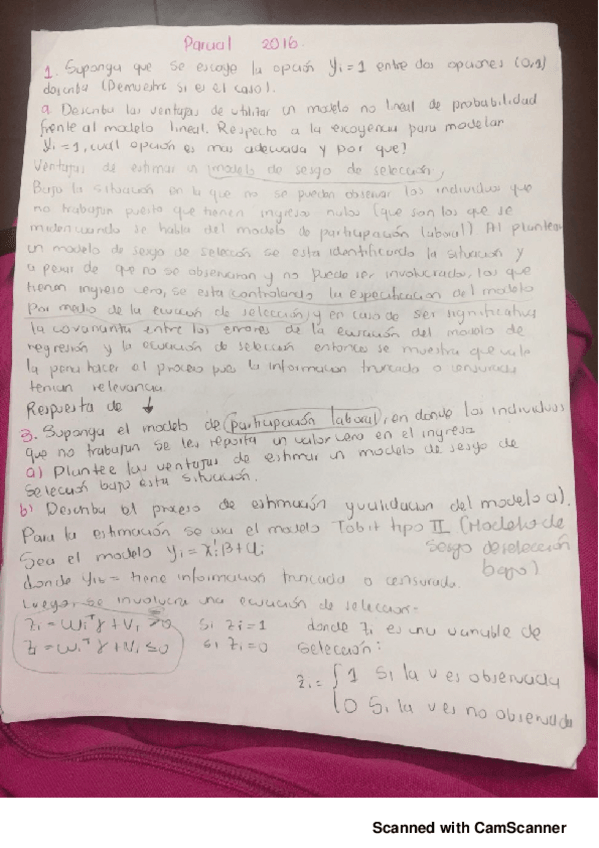 Parcial 2016.
1. Suponga que se escoge la opción yi=1 entre dos opciones (0,1)
describa (Demuestre si es el caso).
a. Describa las ventajas de utilizar un modelo no lineal de probabilidad
frente al modelo lineal. Respecto a la escogencia para modelar
yi=1, cual opción es mas adecuada y por que?
Ventajas de estimar un modelo de sesgo de selección,
Bajo la situación en la que no se puedan observar los individuos que
no trabajan puesto que tienen ingresos nulos (que son los que se
cuando se habla del modelo de participación laboral) Al plantear
un modelo de sesgo de selección se esta identificando la situación y
a pesar de que no se observaran y no puede ser involucrado, los que
tienen ingreso cero, se esta controlando la especificación del modelo
Por medio de la ecuación de selección, y en caso de ser significativa
la covarianza entre los errores de la ecuación del modelo de
regresión y la ecuación de selección entonces se muestra que vale
la pena hacer el proceso pues la información truncada o censurada
tenian relevancia.
Respuesta de ↓
3. Suponga el modelo de participación laboral, en donde los individuos
que no trabajan se les reporta un valor cero en el ingreso
a) Plantee las ventajas de estimar un modelo de sesgo de
selección bajo esta situación.
b) Describa el proceso de estimación y validación del modelo a).
Para la estimación se usa el modelo Tobit tipo II (Modelo de
sesgo de selección
Sea el modelo yi = xi'β + ui
donde yi = tiene información truncada o censurada.
Luego se involucra una ecuación de selección:
zi = wiᵀγ + vi >0 si zi=1 donde zi es una variable de
zi = wiᵀγ + vi ≤0 si zi=0 selección:
zi = { 1 si la v es observada
0 si la v es no observada
Scanned with CamScanner